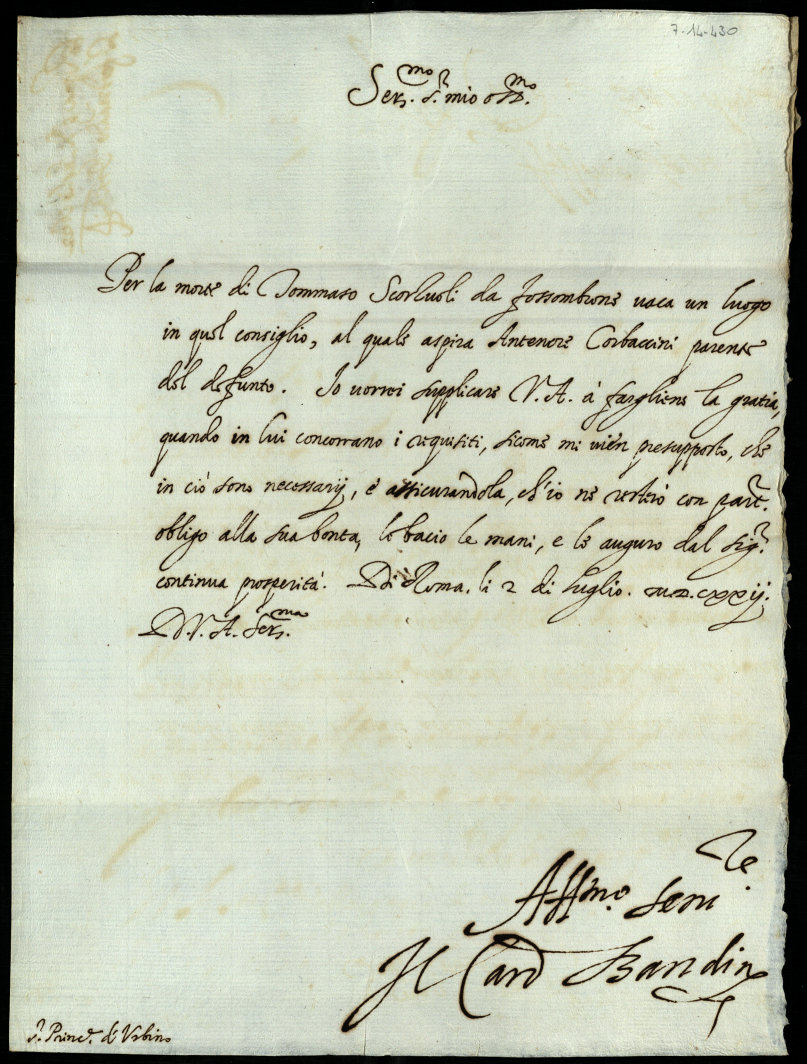 7-14-430
Ser.mo S.r mio oss.mo
Per la morte di Tommaso Scorluoli da fossombrone uaca un luogo
in quel consiglio, al quale aspira Antenore Corbaccini parente
del defunto. Io uorrei supplicare V.A. à fargliene la gratia,
quando in lui concorrano i requisiti, sicome mi uien presupposto, che
in ciò sono necessarij, e assicurandola, ch'io ne resterò con part.r
obligo alla sua bontà, le bacio le mani, e le auguro dal Sig.r
continua prosperità. Di Roma. li 2 di luglio. M.D.CXXij.
D.V.A. Ser.ma
Aff.mo Seru.re
Il Card Bandin
S. Princ.e d'Vrbino